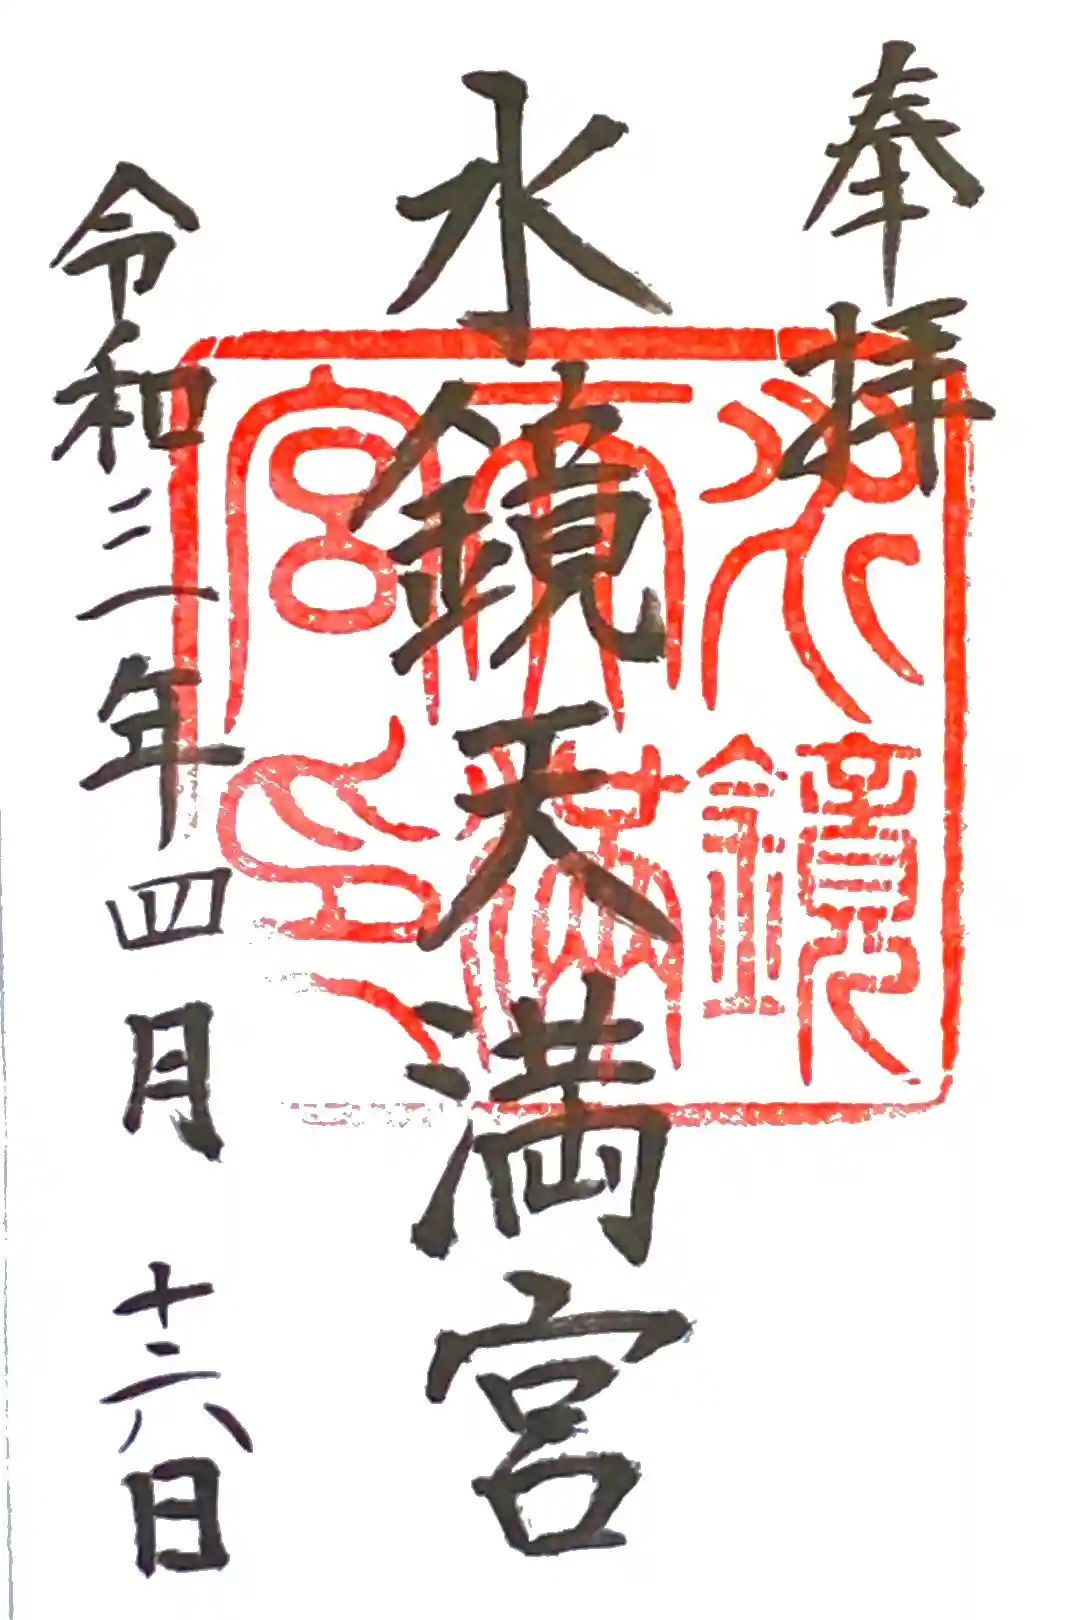 奉拝
水鏡天満宮
令和三年四月十六日
水鏡
天満
宮印